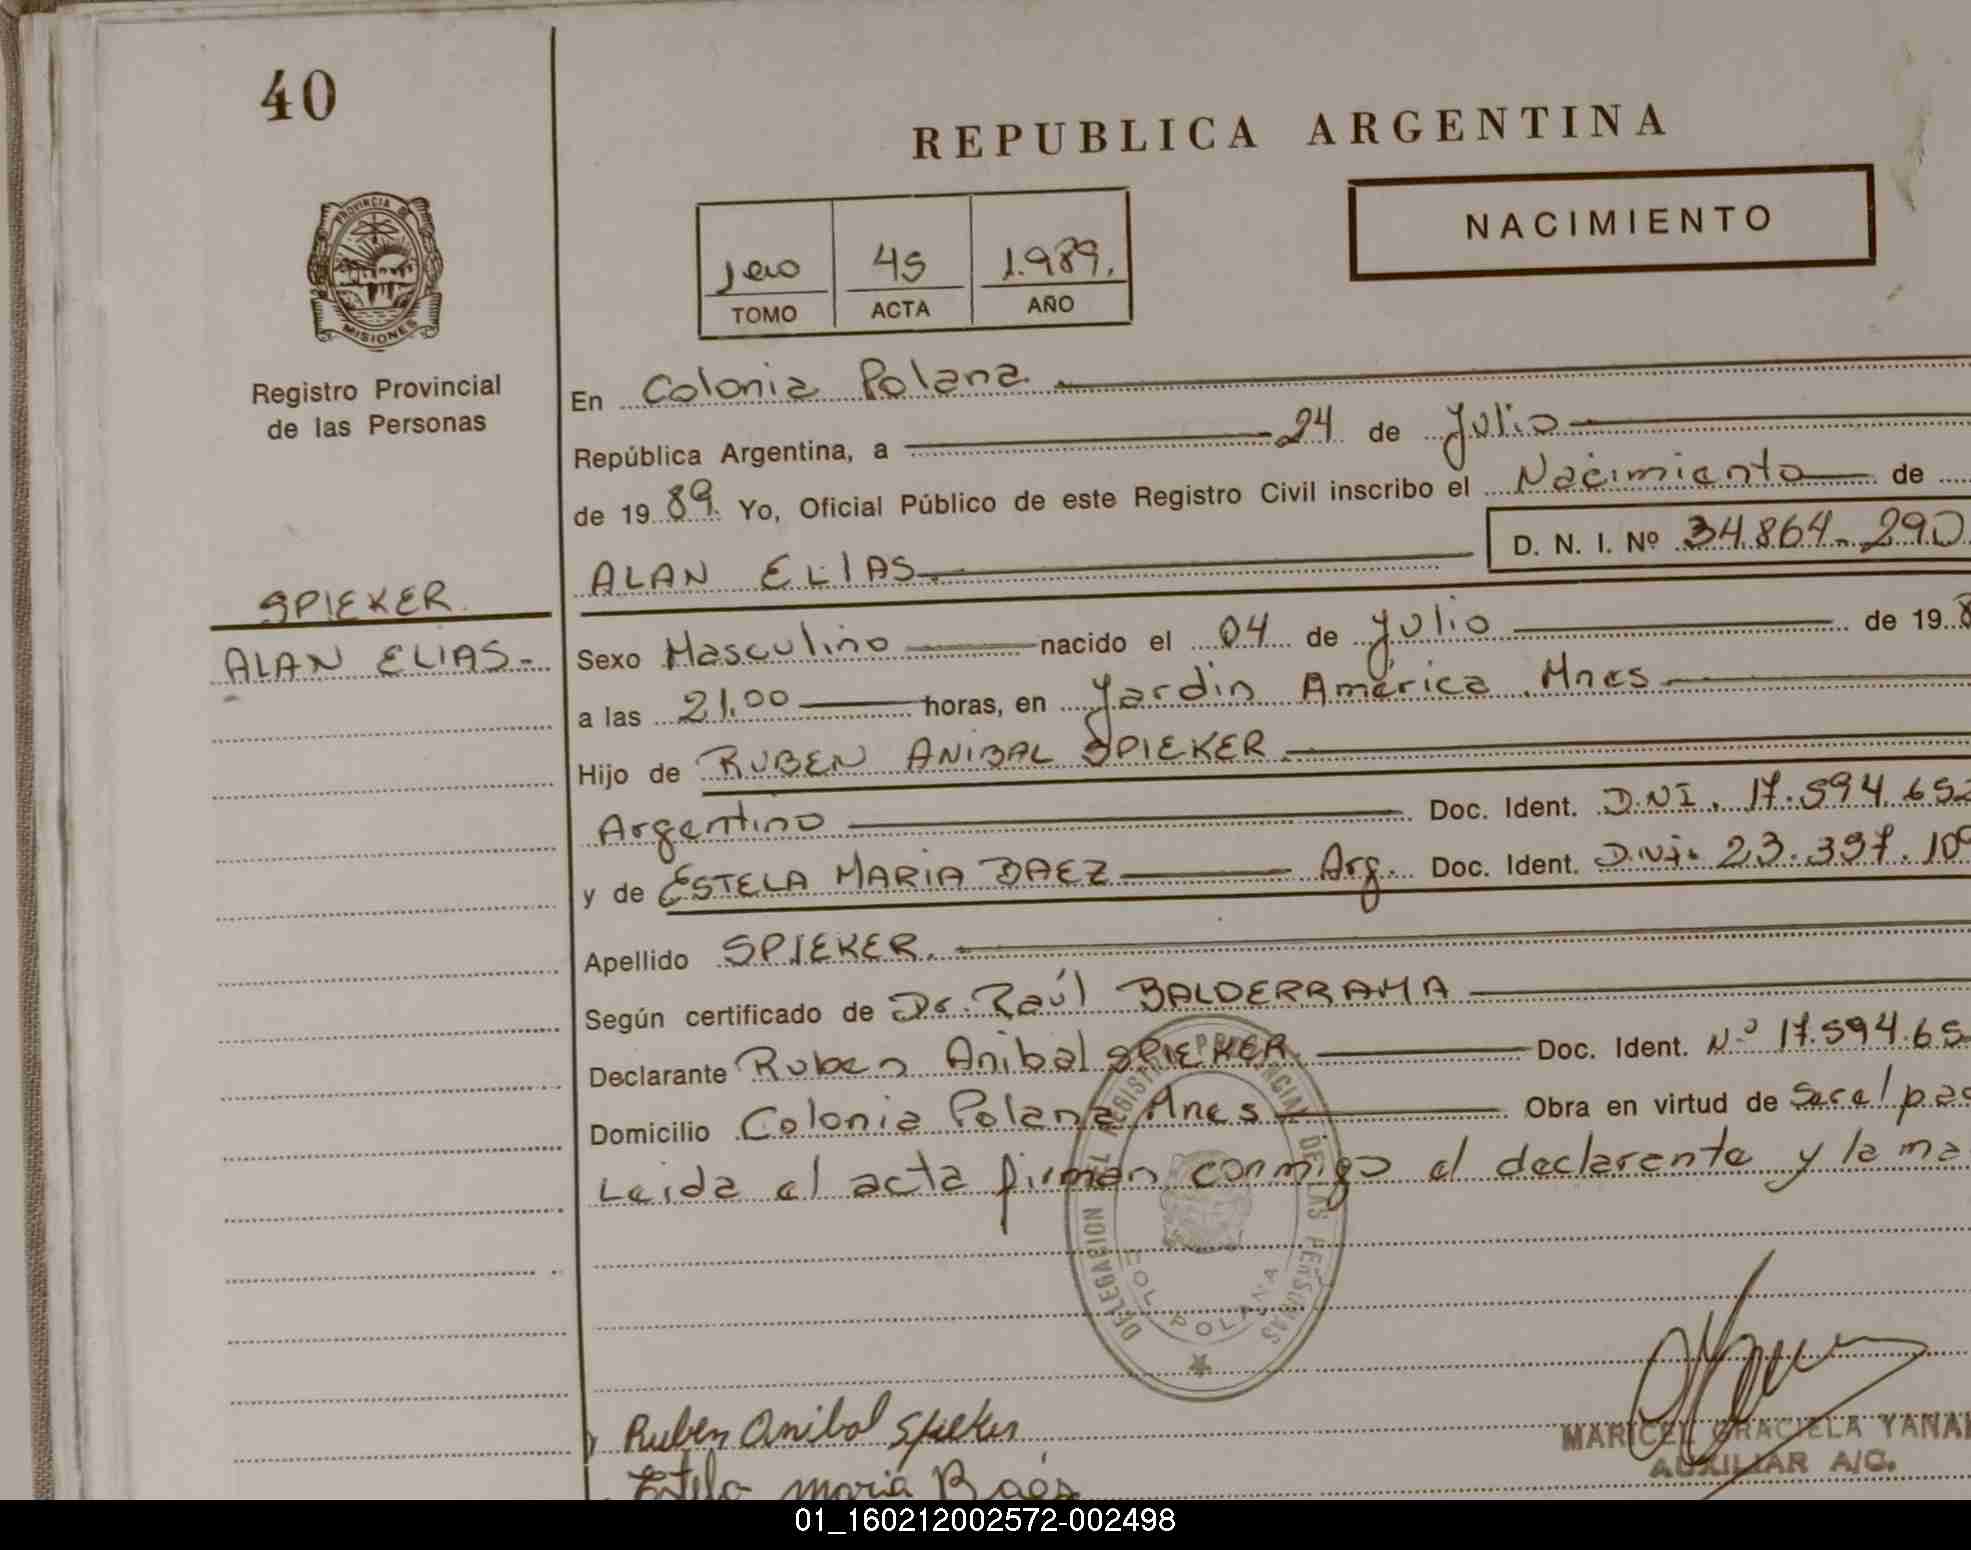 40
REPUBLICA ARGENTINA
NACIMIENTO
1ero 45 1.989.
TOMO ACTA AÑO
PROVINCIA DE
MISIONES
Registro Provincial
de las Personas
En Colonia Polana
República Argentina, a 24 de Julio
de 19 89. Yo, Oficial Público de este Registro Civil inscribo el Nacimiento de
D. N. I. Nº 34.864.290
ALAN ELIAS
SPIEKER
ALAN ELIAS-
Sexo Masculino nacido el 04 de Julio de 19 8
a las 21.00 horas, en Jardin América Mnes
Hijo de RUBEN ANIBAL SPIEKER
Argentino Doc. Ident. D.N.I. 17.594.652
y de ESTELA MARIA BAEZ Arg. Doc. Ident. D.N.I. 23.397.10
Apellido SPIEKER.
Según certificado de Dr. Raúl BALDERRAMA
Declarante Ruben Anibal SPIEKER Doc. Ident. Nº 17.594.65
Domicilio Colonia Polana Mnes Obra en virtud de ser el pad
Leida el acta firman conmigo el declarante y la ma
DELEGACION EL REGISTRO PROVINCIAL DE LAS PERSONAS
COL POLANA
Ruben Anibal Spieker
Estela maria Baés
MARICEL GRACIELA YANA
AUXILIAR A/C.
01_160212002572-002498